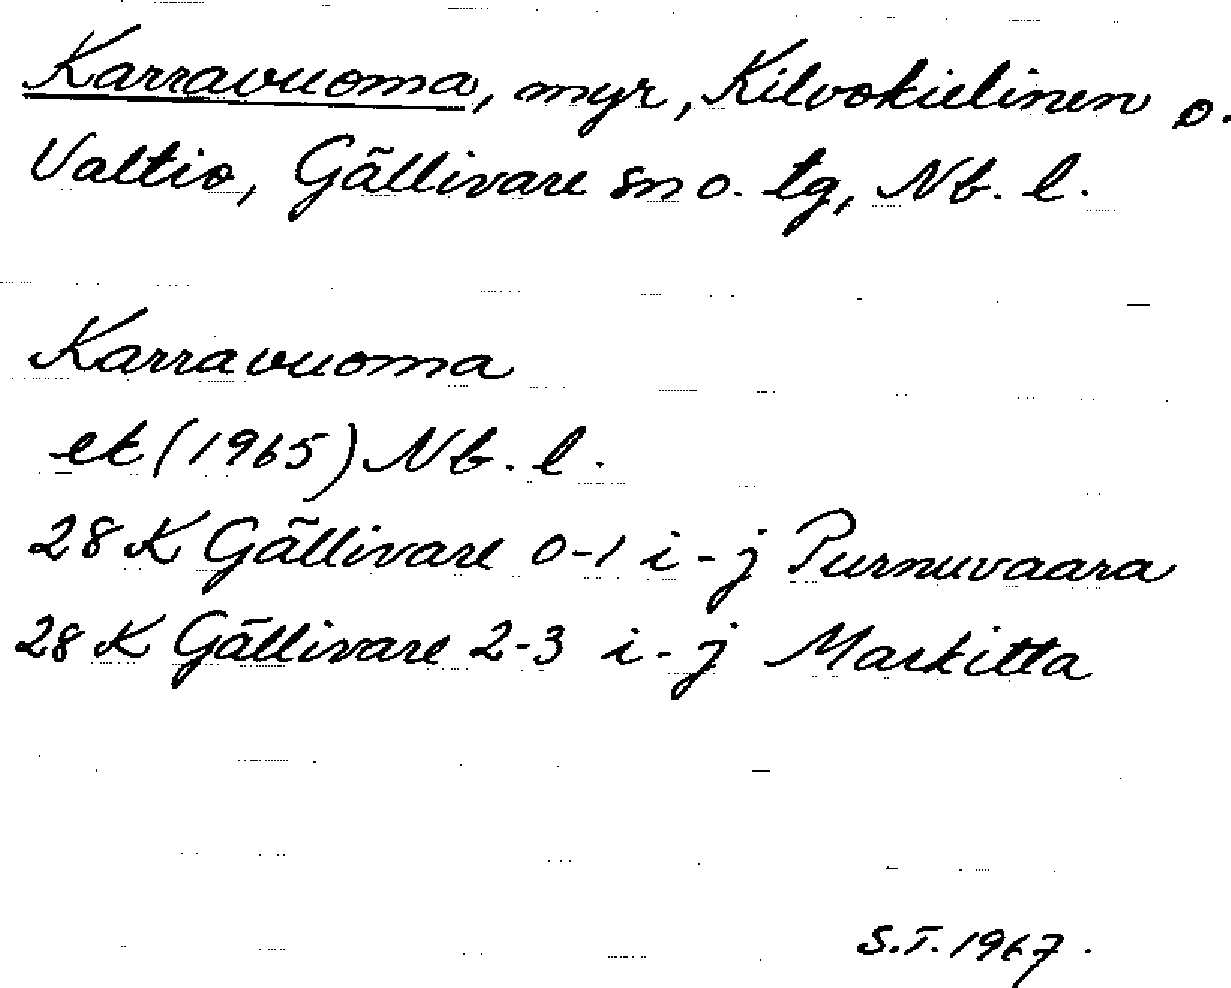 Karravuoma, myr, Kilvokielinen o.
Valtio, Gällivare sn o. tg, Nb. l.
Karravuoma
ek (1965) Nb. l.
28 K Gällivare 0-1 i-j Purnuvaara
28 K Gällivare 2-3 i-j Markitta
S.T. 1967.